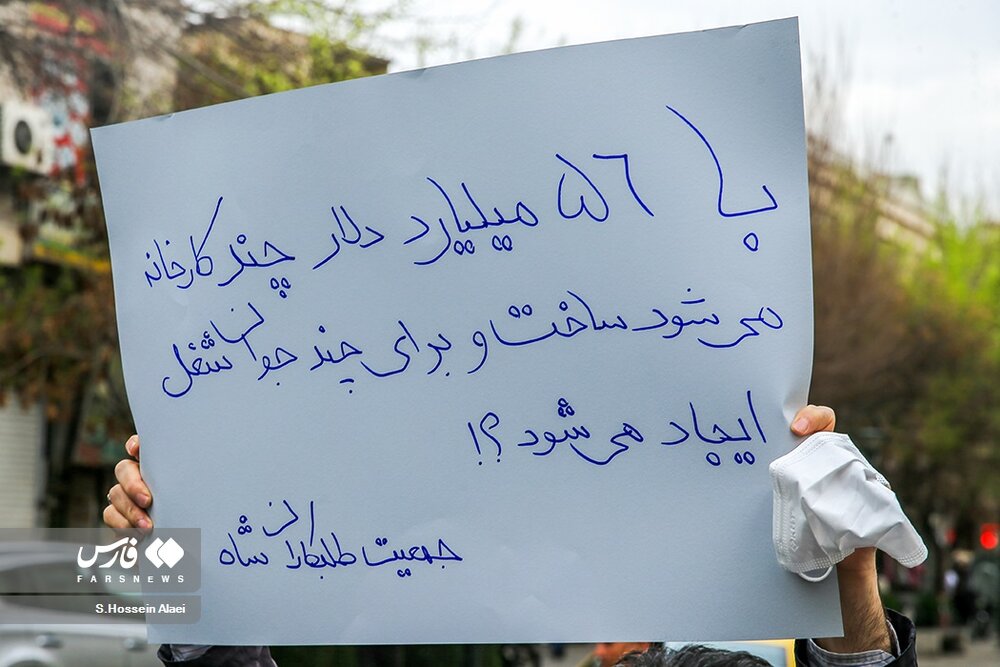 با ۵۶ میلیارد دلار چند کارخانه
می شود ساخت و برای چند جوان شغل
ایجاد می شود ؟!
جمعیت طلبکاران شاه
فارس
FARSNEWS
S.Hossein Alaei